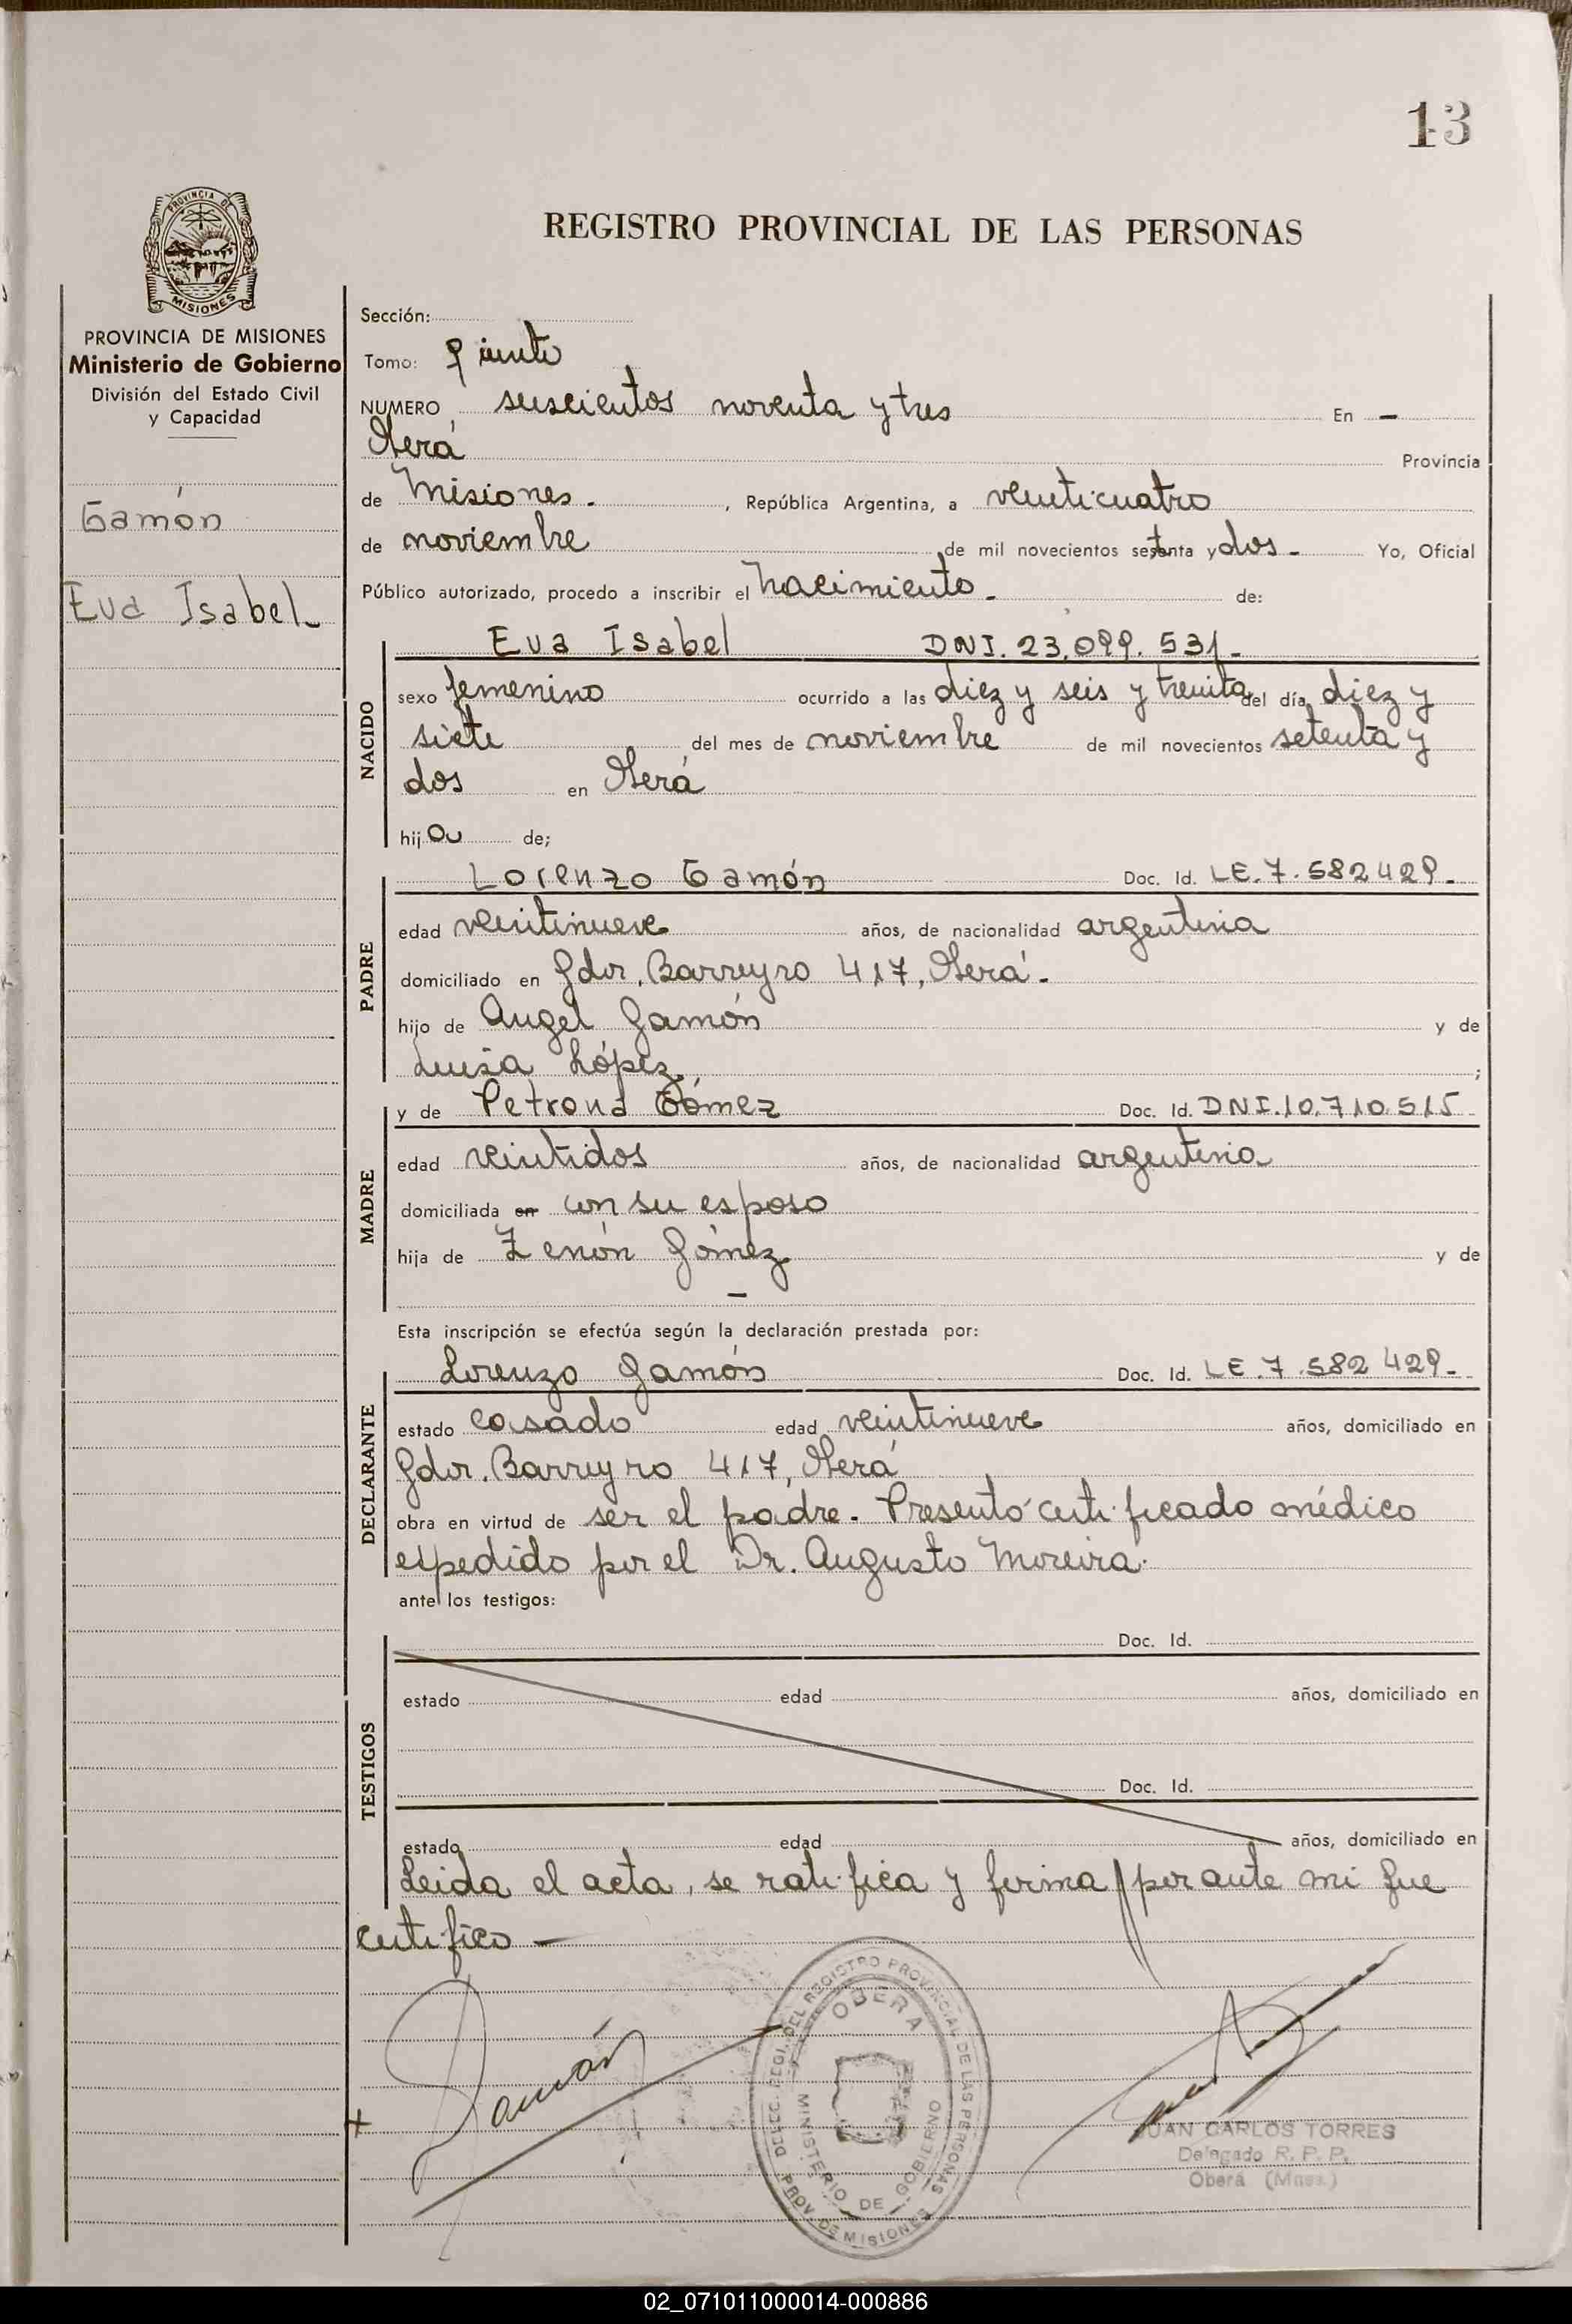 13
PROVINCIA DE
MISIONES
REGISTRO PROVINCIAL DE LAS PERSONAS
PROVINCIA DE MISIONES
Ministerio de Gobierno
División del Estado Civil
y Capacidad
Gamón
Eva Isabel
Sección:
Tomo: Quinto
NUMERO seiscientos noventa y tres En -
Oberá Provincia
de Misiones. , República Argentina, a veinticuatro
de noviembre de mil novecientos setenta y dos - Yo, Oficial
Público autorizado, procedo a inscribir el nacimiento - de:
Eva Isabel DNI. 23.099.531-
NACIDO
sexo femenino ocurrido a las diez y seis y treinta del día diez y
siete del mes de noviembre de mil novecientos setenta y
dos en Oberá
hija de;
Lorenzo Gamón Doc. Id. LE. 7.582429-
PADRE
edad veintinueve años, de nacionalidad argentina
domiciliado en Gdor. Barreyro 417, Oberá-
hijo de Angel Gamón y de
Luisa López ;
y de Petrona Gómez Doc. Id. DNI.10.710.515
MADRE
edad veintidos años, de nacionalidad argentina
domiciliada en con su esposo
hija de Zenón Gómez y de
-
Esta inscripción se efectúa según la declaración prestada por:
Lorenzo Gamón Doc. Id. LE. 7.582 429-
DECLARANTE
estado casado edad veintinueve años, domiciliado en
Gdor. Barreyro 417, Oberá
obra en virtud de ser el padre. Presentó certificado médico
espedido por el Dr. Augusto Moreira.
ante los testigos:
TESTIGOS
Doc. Id.
estado edad años, domiciliado en
Doc. Id.
estado edad años, domiciliado en
Leida el acta, se ratifica y firma por ante mi que
certifico -
Gamón
DELEG. REGI. DEL REGISTRO PROVINCIAL DE LAS PERSONAS
OBERA
MINISTERIO DE GOBIERNO
PROV. DE MISIONES
JUAN CARLOS TORRES
Delegado R. P. P.
Oberá (Mnes.)
02_071011000014-000886